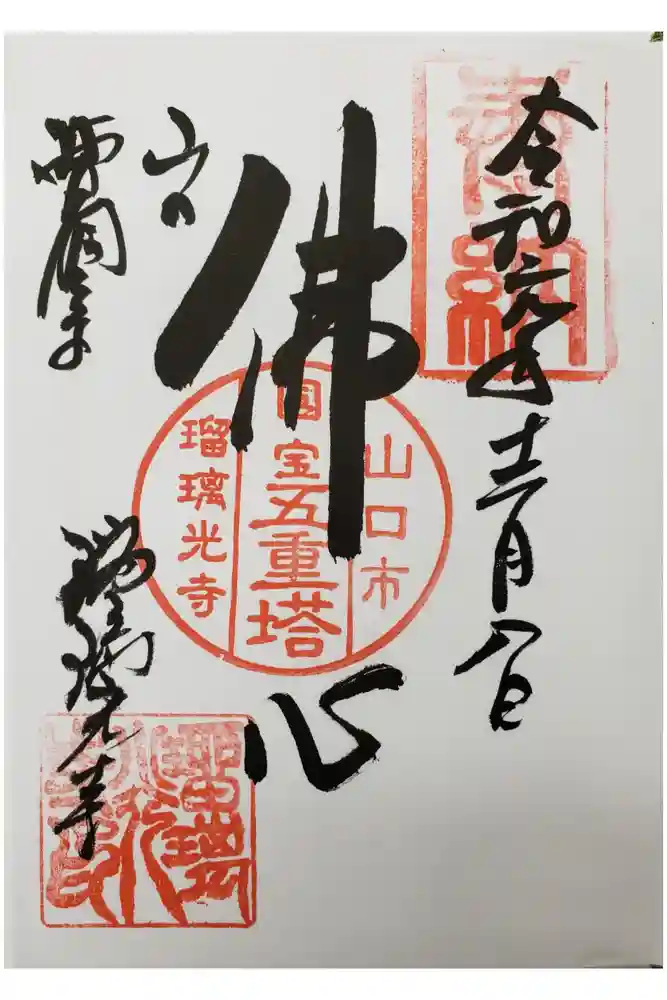 奉納
令和元年十二月八日
佛心
山口市
国宝五重塔
瑠璃光寺
山口
西国一寺
瑠璃光寺